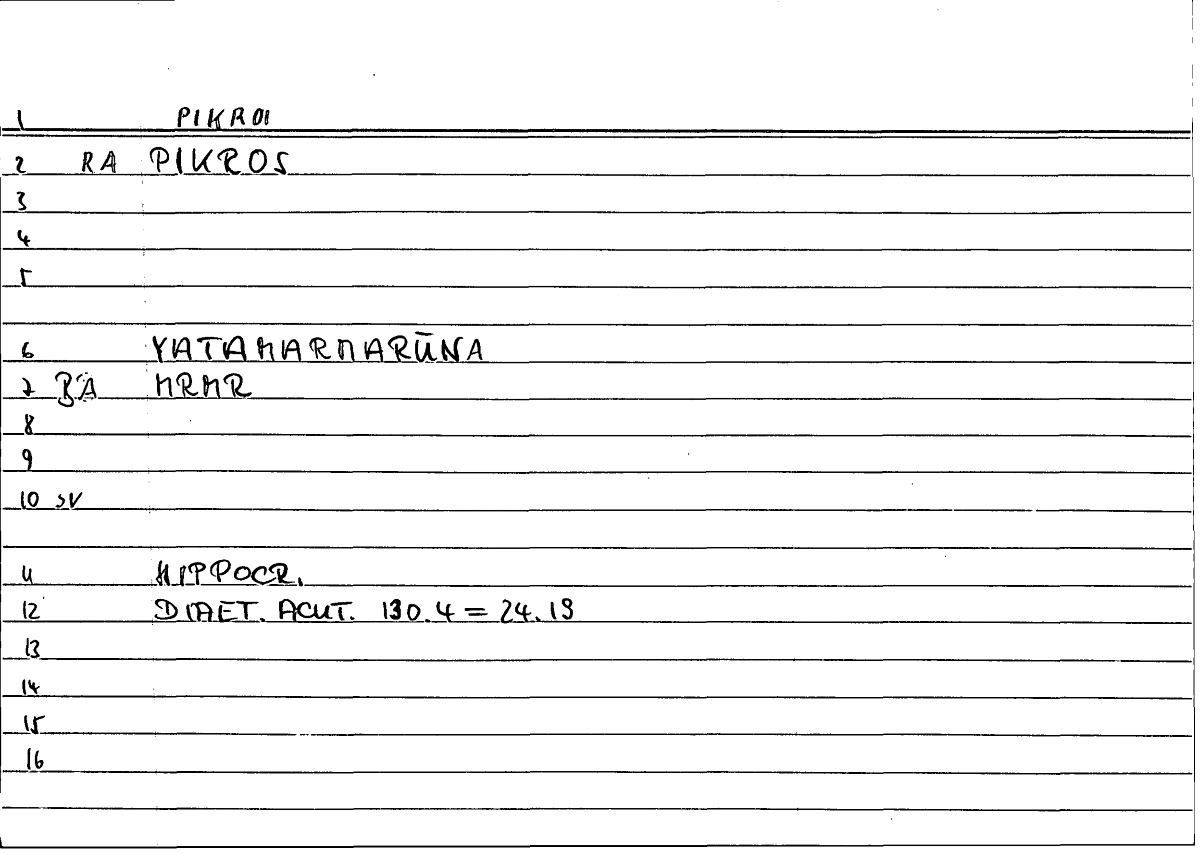 1 PIKROI
2 RA PIKROS
3
4
5
6 YATAMARMARŪNA
7 BA MRMR
8
9
10 SV
11 HIPPOCR.
12 DIAET. ACUT. 130.4 = 24.19
13
14
15
16